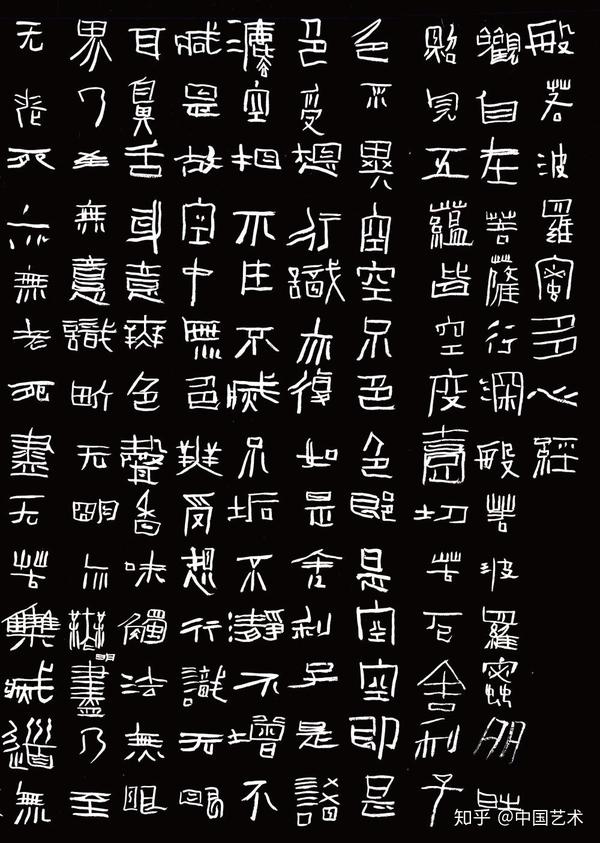 般若波羅蜜多心經
觀自在菩薩行深般若波羅蜜多時
照見五蘊皆空度壹切苦厄舍利子
色不異空空不色色即是空空即是
色受想行識亦復如是舍利子是諸
灋空相不生不滅不垢不瀞不增不
減是故空中無色無受想行識无眼
耳鼻舌身意無色聲香味觸法無眼
界乃至無意識界无明亦無明盡乃至
无老死亦無老死盡无苦集滅道無
知乎 @中国艺术